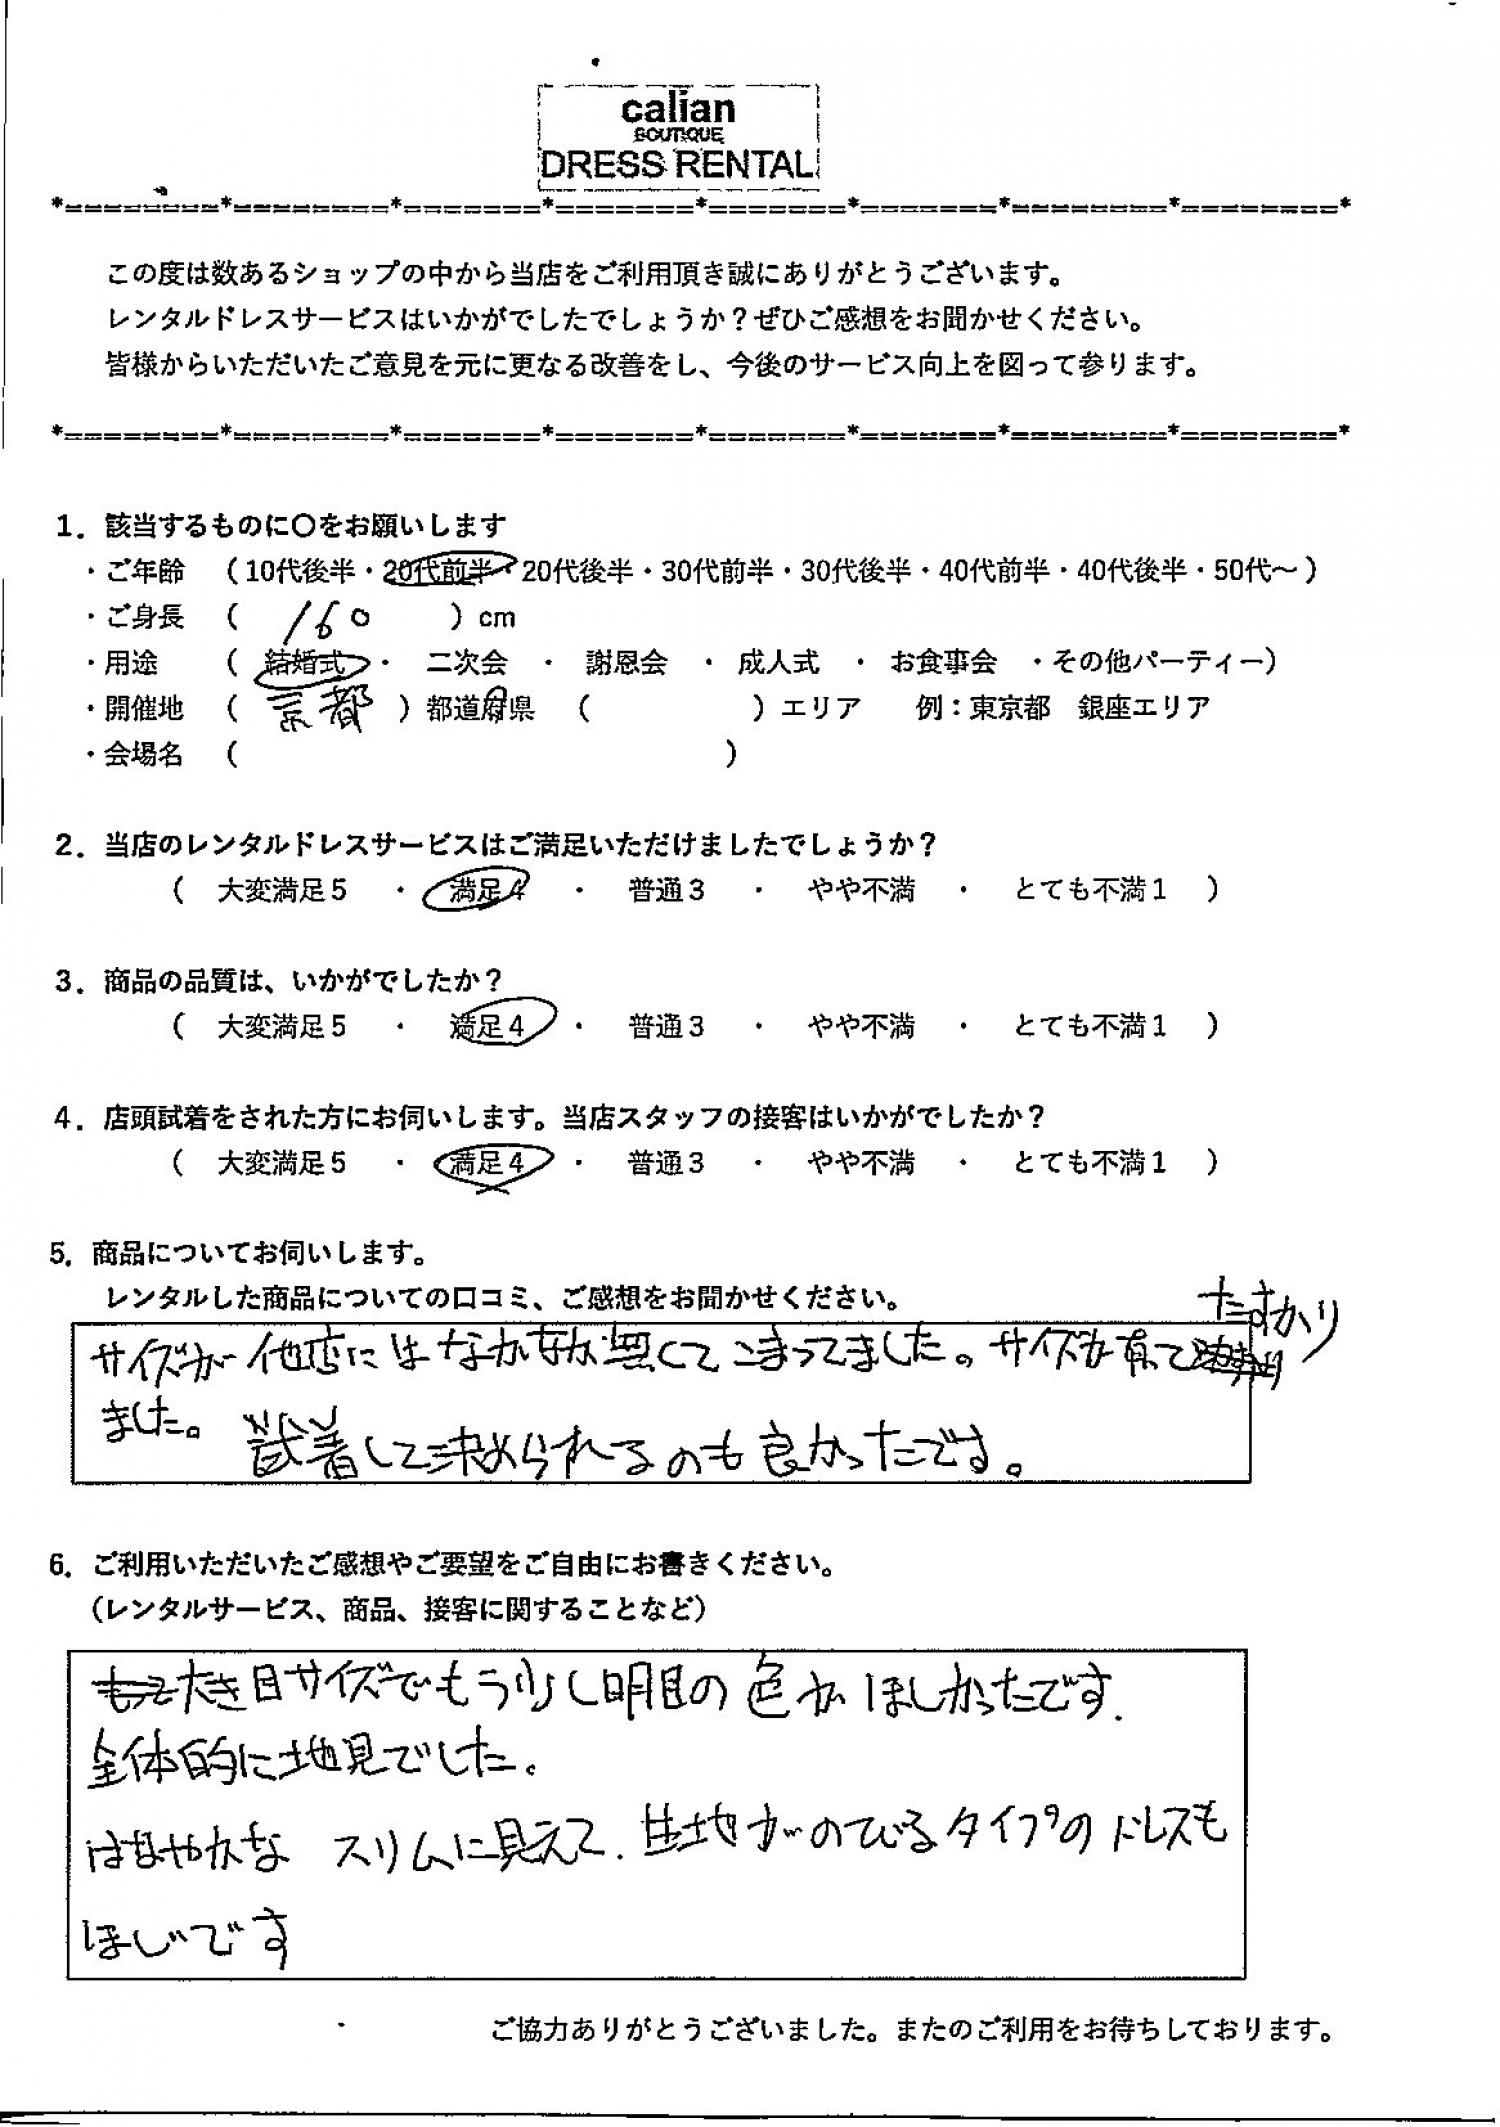 calian
BOUTIQUE
DRESS RENTAL
*========*========*=======*=======*=======*=======*========*========*
この度は数あるショップの中から当店をご利用頂き誠にありがとうございます。
レンタルドレスサービスはいかがでしたでしょうか？ぜひご感想をお聞かせください。
皆様からいただいたご意見を元に更なる改善をし、今後のサービス向上を図って参ります。
*========*========*=======*=======*=======*=======*========*========*
1．該当するものに〇をお願いします
・ご年齢　（10代後半・20代前半・20代後半・30代前半・30代後半・40代前半・40代後半・50代～）
・ご身長　（　160　）cm
・用途　（　結婚式　・　二次会　・　謝恩会　・　成人式　・　お食事会　・その他パーティー）
・開催地　（　京都　）都道府県　（　　　）エリア　例：東京都　銀座エリア
・会場名　（　　　）
2．当店のレンタルドレスサービスはご満足いただけましたでしょうか？
（　大変満足５　・　満足４　・　普通３　・　やや不満　・　とても不満１　）
3．商品の品質は、いかがでしたか？
（　大変満足５　・　満足４　・　普通３　・　やや不満　・　とても不満１　）
4．店頭試着をされた方にお伺いします。当店スタッフの接客はいかがでしたか？
（　大変満足５　・　満足４　・　普通３　・　やや不満　・　とても不満１　）
5．商品についてお伺いします。
レンタルした商品についての口コミ、ご感想をお聞かせください。
サイズが他店にはなかなか無くてこまってました。サイズが有ってたすかり
ました。試着して決められるのも良かったです。
6．ご利用いただいたご感想やご要望をご自由にお書きください。
（レンタルサービス、商品、接客に関することなど）
大き目サイズでもう少し明目の色がほしかったです.
全体的に地見でした。
はなやかな スリムに見えて. 生地がのびるタイプのドレスも
ほしいです
ご協力ありがとうございました。またのご利用をお待ちしております。